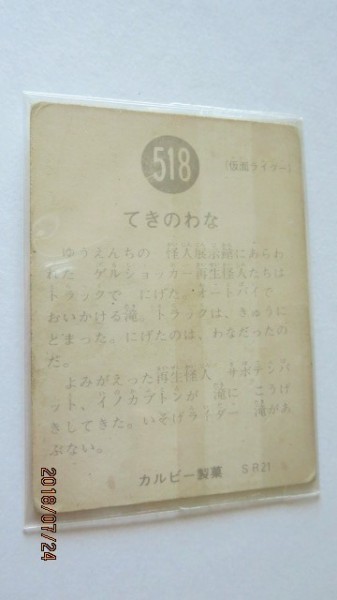 518
(仮面ライダー)
てきのわな
ゆうえんちの 怪人展示館にあらわ
れた ゲルショッカー再生怪人たちは
トラックで にげた。オートバイで
おいかける滝。トラックは、きゅうに
とまった。にげたのは、わなだったの
だ。
よみがえった再生怪人 サボテンバ
ット、イソカラ が 滝に こうげ
きしてきた。いそげライダー 滝があ
ぶない。
カルビー製菓 SR21
2018/07/24